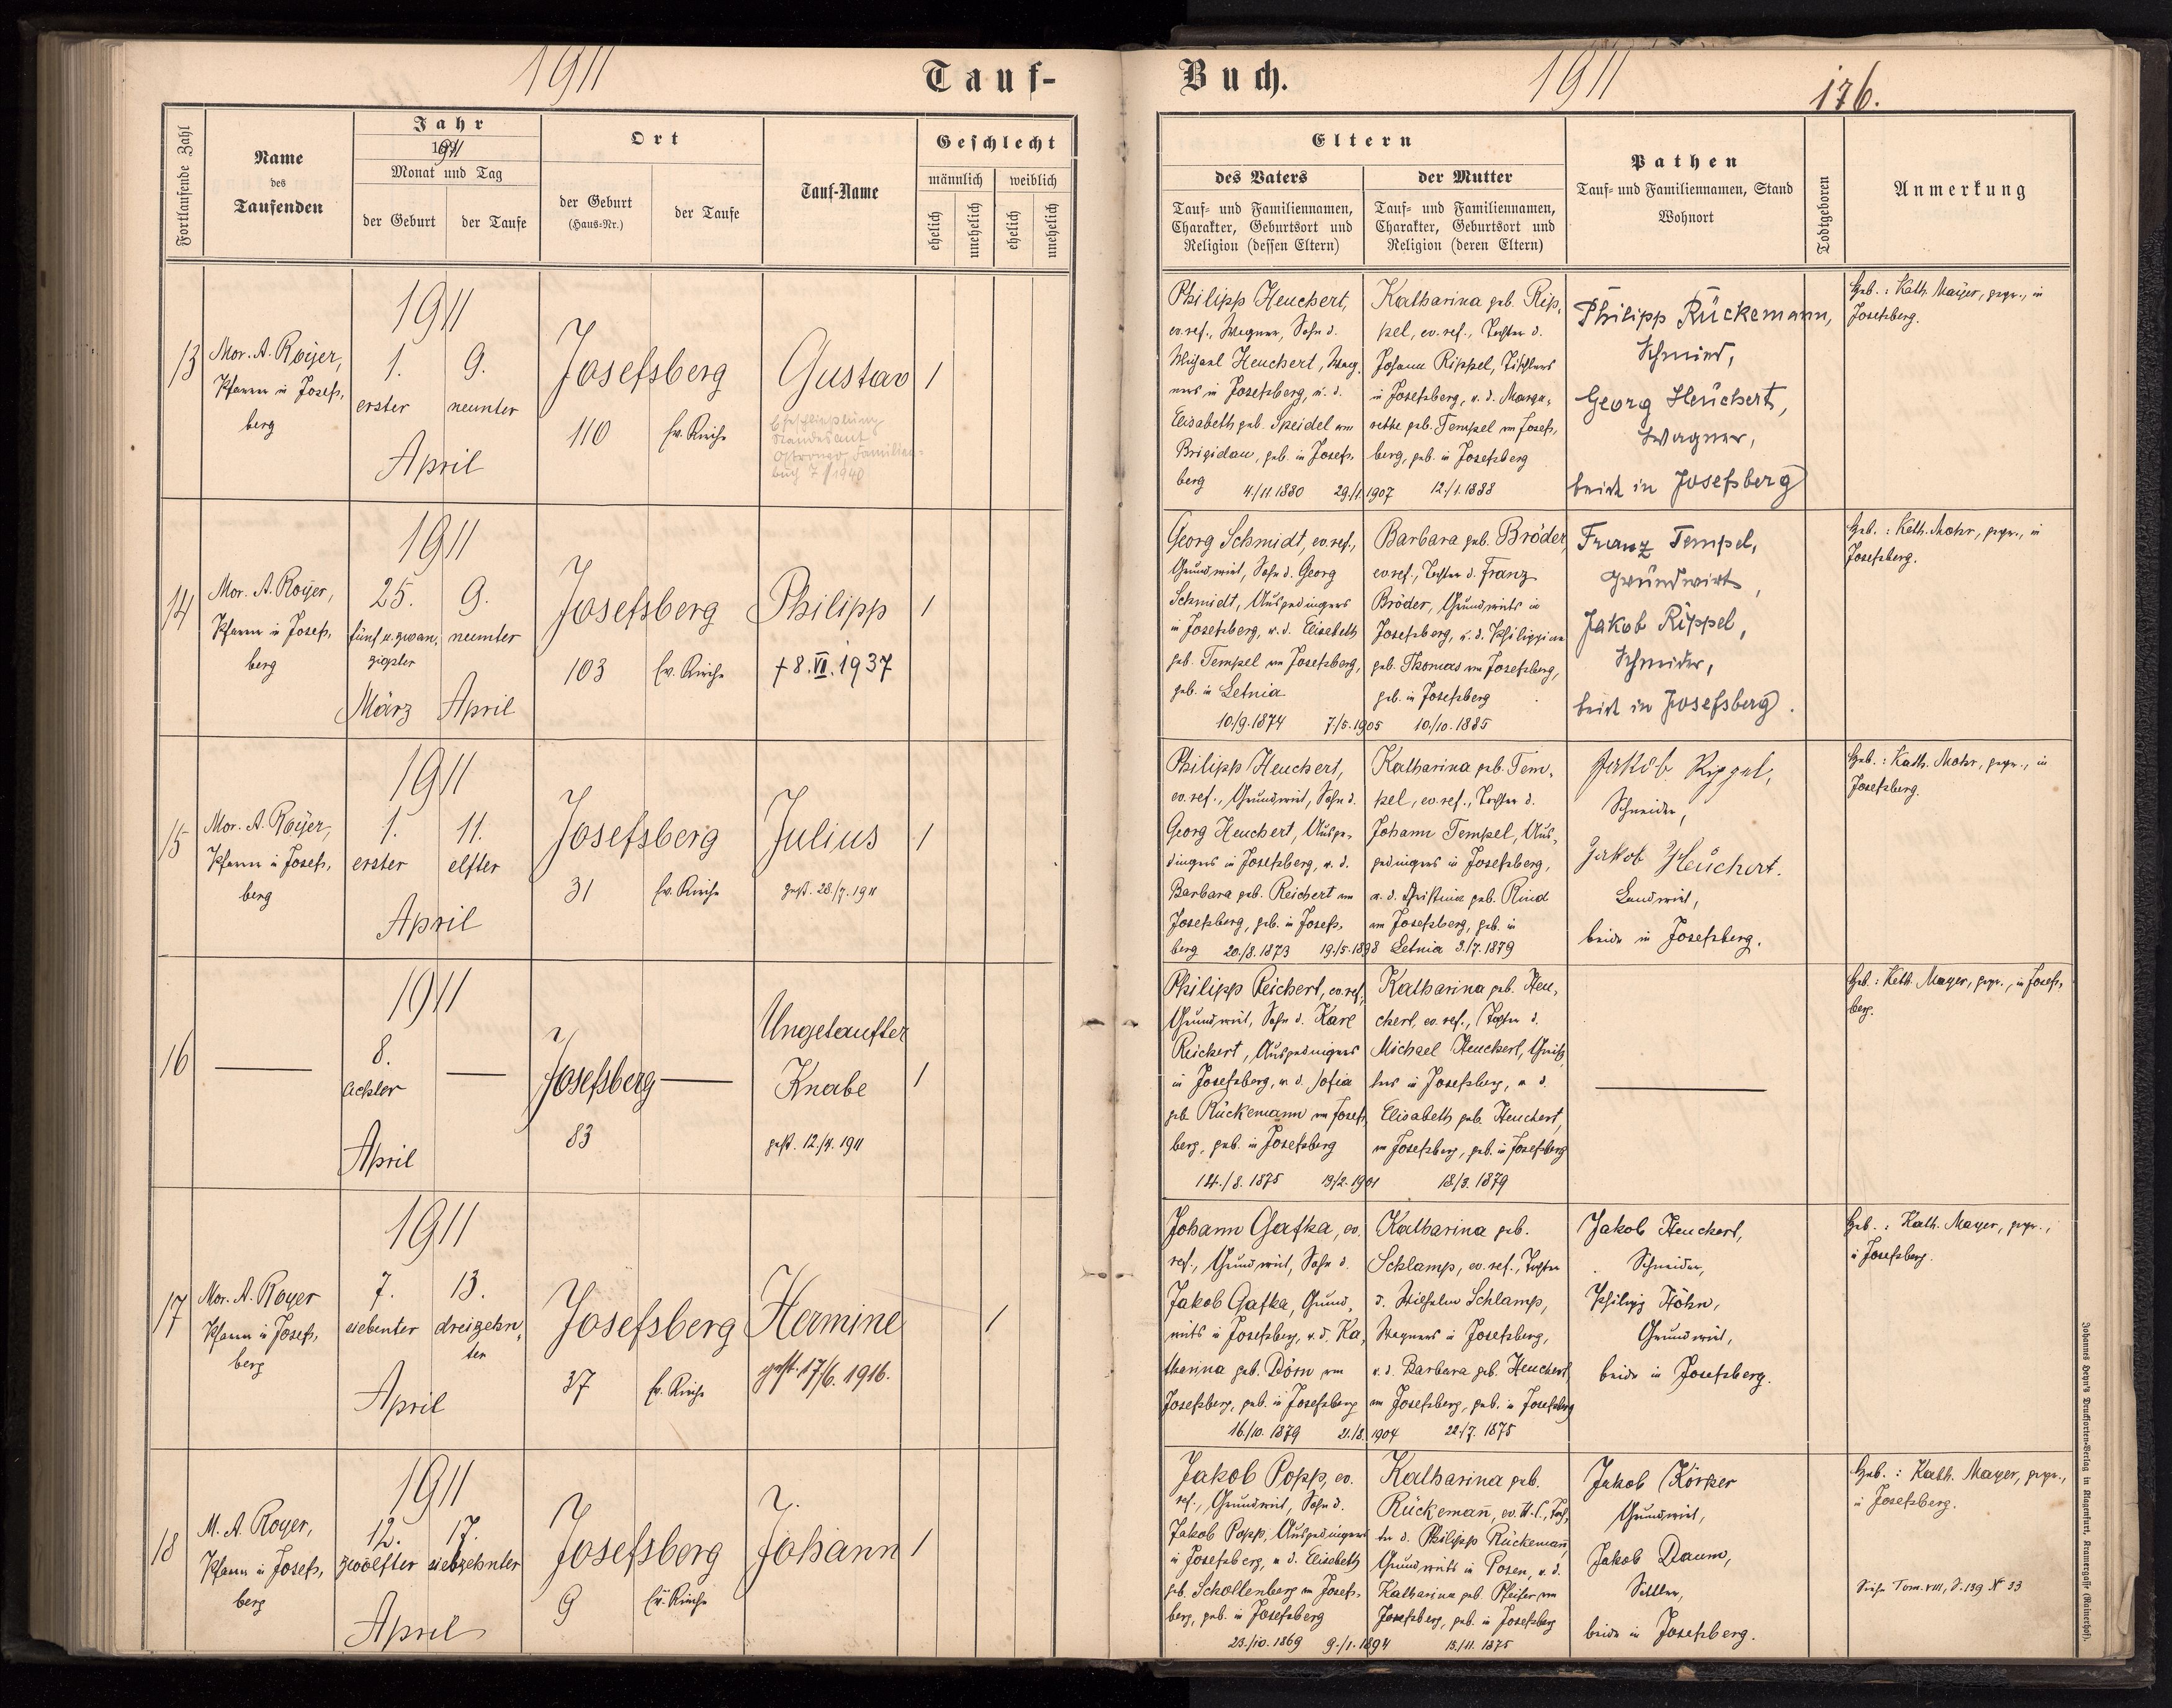 1911
Tauf-
Buch.
1911
176.
Fortlaufende Zahl
Name
des
Taufenden
Jahr
1911
Monat und Tag
der Geburt
der Taufe
Ort
der Geburt
(Haus-Nr.)
der Taufe
Tauf-Name
Geschlecht
männlich
weiblich
ehelich
unehelich
ehelich
unehelich
Eltern
des Vaters
Tauf- und Familiennamen,
Charakter, Geburtsort und
Religion (dessen Eltern)
der Mutter
Tauf- und Familiennamen,
Charakter, Geburtsort und
Religion (deren Eltern)
Pathen
Tauf- und Familiennamen, Stand
Wohnort
Todtgeboren
Anmerkung
13
Mor. A. Royer,
Pfarrer in Josefs-
berg
1911
1. 9.
erster neunter
April
Josefsberg
110 Ev. Kirche
Gustav
Eheschließung
Standesamt
Ostrowo, Familien-
buch 7/1940
1
Philipp Heuchert,
ev. ref., Wagner, Sohn d.
Michael Heuchert, Wag-
ners in Josefsberg, u. d.
Elisabeth geb. Speidel von
Brigidau, geb. in Josefs-
berg
4./11.1880 29./1.1907 12./1.1888
Katharina geb. Rip-
pel, ev. ref., Tochter d.
Johann Rippel, Tischlers
in Josefsberg, u. d. Marga-
rethe geb. Tempel von Josefs-
berg, geb. in Josefsberg
Philipp Rückemann,
Schmied,
Georg Heuchert,
Wagner,
beide in Josefsberg
Heb.: Kath. Mayer, gepr., in
Josefsberg.
14
Mor. A. Royer,
Pfarrer in Josefs-
berg
1911
25. 9.
fünf u. zwan- neunter
zigster
März April
Josefsberg
103 Ev. Kirche
Philipp
† 8. VI. 1937
1
Georg Schmidt, ev. ref.,
Grundwirt, Sohn d. Georg
Schmidt, Ausgedingers
in Josefsberg, u. d. Elisabeth
geb. Tempel von Josefsberg,
geb. in Letnia
10/9.1874 7/5.1905 10./10.1885
Barbara geb. Bröder,
ev. ref., Tochter d. Franz
Bröder, Grundwirts in
Josefsberg, u. d. Philippine
geb. Thomas von Josefsberg,
geb. in Josefsberg
Franz Tempel,
Grundwirt,
Jakob Rippel,
Schneider,
beide in Josefsberg.
Heb.: Kath. Mohr, gepr., in
Josefsberg.
15
Mor. A. Royer,
Pfarrer in Josefs-
berg
1911
1. 11.
erster elfter
April
Josefsberg
31 Ev. Kirche
Julius
gest. 28./7. 1911
1
Philipp Heuchert,
ev. ref., Grundwirt, Sohn d.
Georg Heuchert, Ausge-
dingers in Josefsberg, u. d.
Barbara geb. Reichert von
Josefsberg, geb. in Josefs-
berg 20./8.1873 19./5.1898
Katharina geb. Tem-
pel, ev. ref., Tochter d.
Johann Tempel, Aus-
gedingers in Josefsberg,
u. d. Christina geb. Rind
von Josefsberg, geb. in
Letnia 3./7.1879
Jakob Rippel,
Schneider,
Jakob Heuchert.
Landwirt,
beide in Josefsberg.
Heb.: Kath. Mohr, gepr., in
Josefsberg.
16
1911
8.
achter
April
Josefsberg
83
Ungetaufter
Knabe
gest. 12./4. 1911
1
Philipp Reichert, ev. ref.,
Grundwirt, Sohn d. Karl
Reichert, Ausgedingers
in Josefsberg, u. d. Sofia
geb. Rückemann von Josefs-
berg, geb. in Josefsberg
14./8. 1875 13/2.1901 18/3. 1879
Katharina geb. Heu-
chert, ev. ref., Tochter d.
Michael Heuchert,
in Josefsberg, u. d.
Elisabeth geb. Heuchert,
von Josefsberg, geb. in Josefsberg
Heb.: Kath. Mayer, gepr., in Josefs-
berg.
17
Mor. A. Royer
Pfarrer in Josefs-
berg
1911
7. 13.
siebenter dreizehn-
ter
April
Josefsberg
37 Ev. Kirche
Hermine
gest. 17/6. 1916.
1
Johann Gafka, ev.
ref., Grundwirt, Sohn d.
Jakob Gafka, Grund-
wirts in Josefsberg, u. d. Ka-
tharina geb. Dörn von
Josefsberg, geb. in Josefsberg
16./10. 1879 21./8. 1904 22./7. 1875
Katharina geb.
Schlamp, ev. ref., Tochter
d. Wilhelm Schlamp,
Wagners in Josefsberg,
u. d. Barbara geb. Heuchert
von Josefsberg, geb. in Josefsberg
Jakob Heuchert,
Schneider,
Philipp Höhn,
Grundwirt,
beide in Josefsberg.
Heb.: Kath. Mayer, gepr.,
in Josefsberg.
18
M. A. Royer,
Pfarrer in Josefs-
berg
1911
12. 17.
zwölfter siebzehnter
April
Josefsberg
9 Ev. Kirche
Johann
1
Jakob Popp, ev.
ref., Grundwirt, Sohn d.
Jakob Popp, Ausgedingers
in Josefsberg, u. d. Elisabeth
geb. Schollenberg von Josefs-
berg, geb. in Josefsberg
23./10. 1869 9./1.1894 13./11. 1875
Katharina geb.
Rückemañ, ev. H. C., Toch-
ter d. Philipp Rückemañ,
Grundwirts in Posen, u. d.
Katharina geb. Pfeifer von
Josefsberg, geb. in Josefsberg
Jakob Körper
Grundwirt,
Jakob Daum,
Sattler,
beide in Josefsberg.
Heb.: Kath. Mayer, gepr.,
in Josefsberg.
Siehe Tom. VIII, S. 139 N 33
Johannes Heyn's Drucksorten-Verlag in Klagenfurt, Kramergasse (Mainerhof).